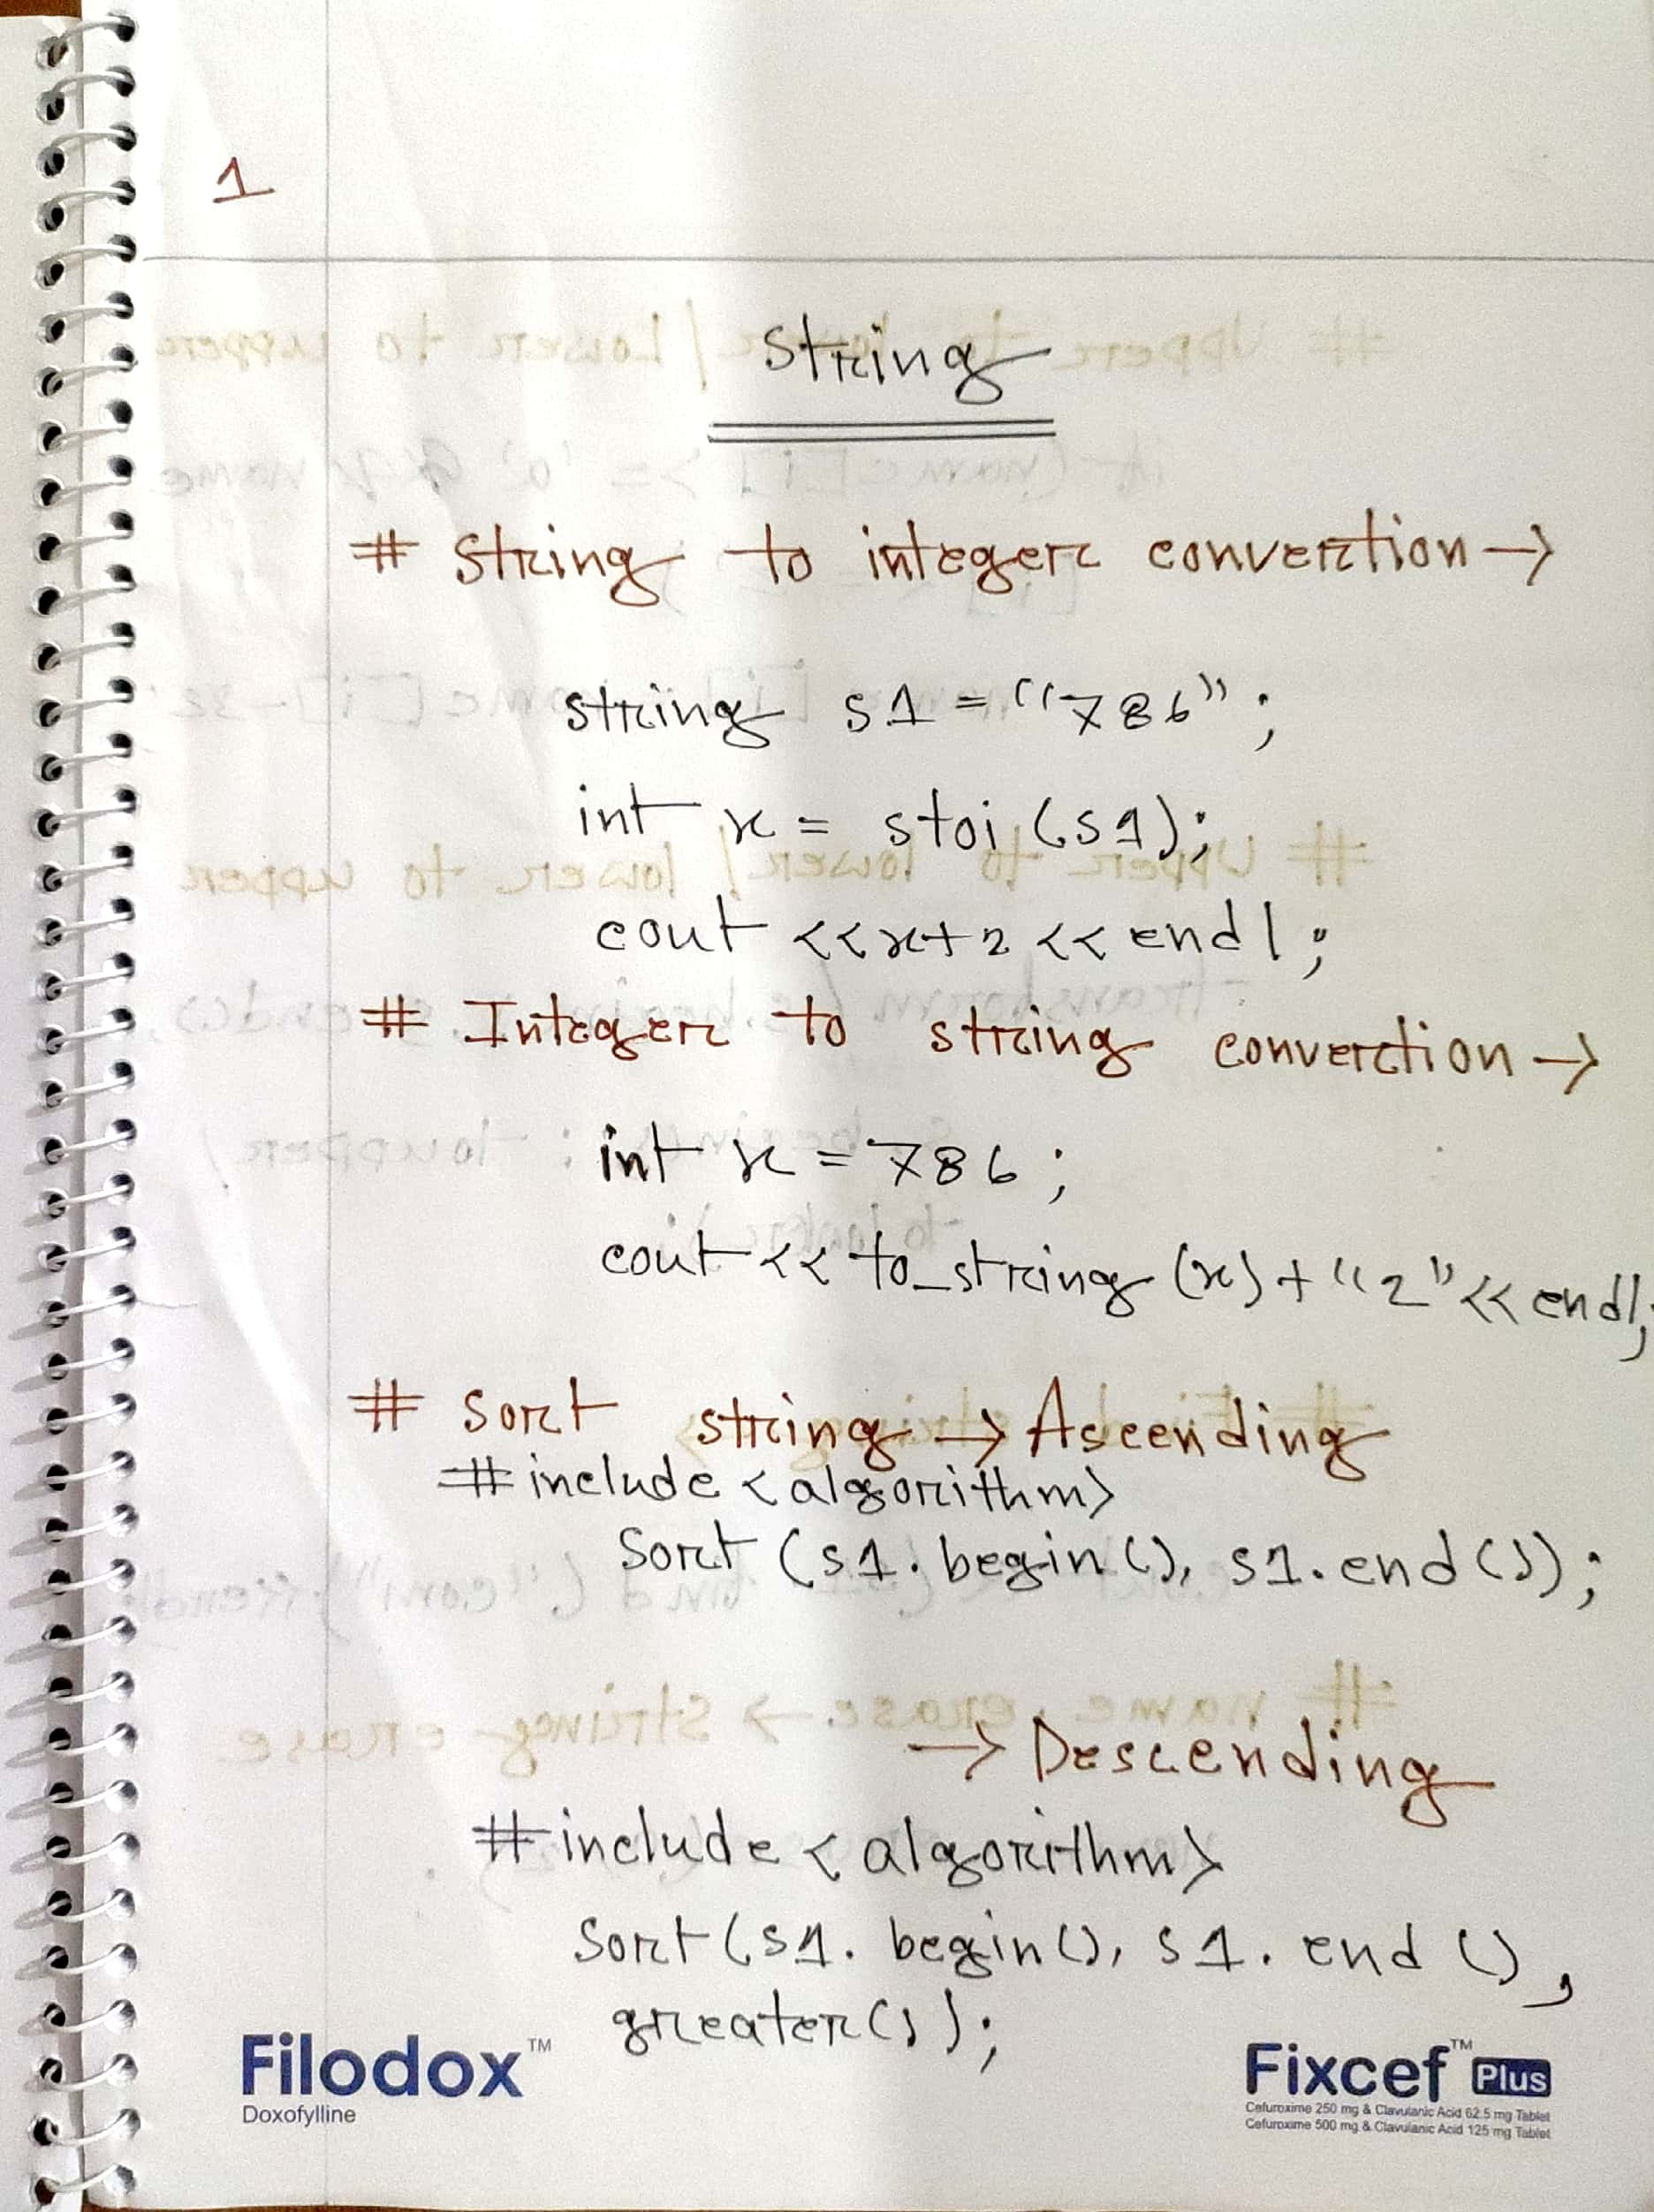 1
String
# String to integer convertion →
string s1 = "786";
int x = stoi(s1);
cout << x+2 << endl;
# Integer to string convertion →
int x = 786;
cout << to_string(x) + "2" << endl;
# Sort string → Ascending
#include <algorithm>
Sort (s1.begin(), s1.end());
→ Descending
#include <algorithm>
Sort(s1.begin(), s1.end(),
greater());
Filodox™
Doxofylline
Fixcef™ Plus
Cefuroxime 250 mg & Clavulanic Acid 62.5 mg Tablet
Cefuroxime 500 mg & Clavulanic Acid 125 mg Tablet